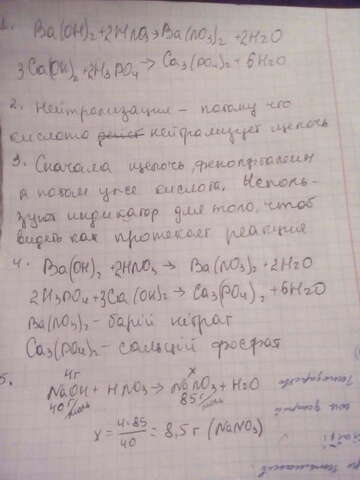 1.
Ba(OH)2+2HNO3→Ba(NO3)2+2H2O
3Ca(OH)2+2H3PO4→Ca3(PO4)2+6H2O
2. Нейтрализация – потому что
кислота нейтрализует щелочь
3. Сначала щелочь, фенолфталеин
а потом уже кислота. Исполь-
зуют индикатор для того, чтоб
видеть как протекает реакция
4. Ba(OH)2+2HNO3→Ba(NO3)2+2H2O
2H3PO4+3Ca(OH)2→Ca3(PO4)2+6H2O
Ba(NO3)2 – барий нитрат
Ca3(PO4)2 – сальций фосфат
5. 4г x
NaOH + HNO3 → NaNO3 + H2O
40 г/моль 85 г/моль
x = 4·85/40 = 8,5 г (NaNO3)